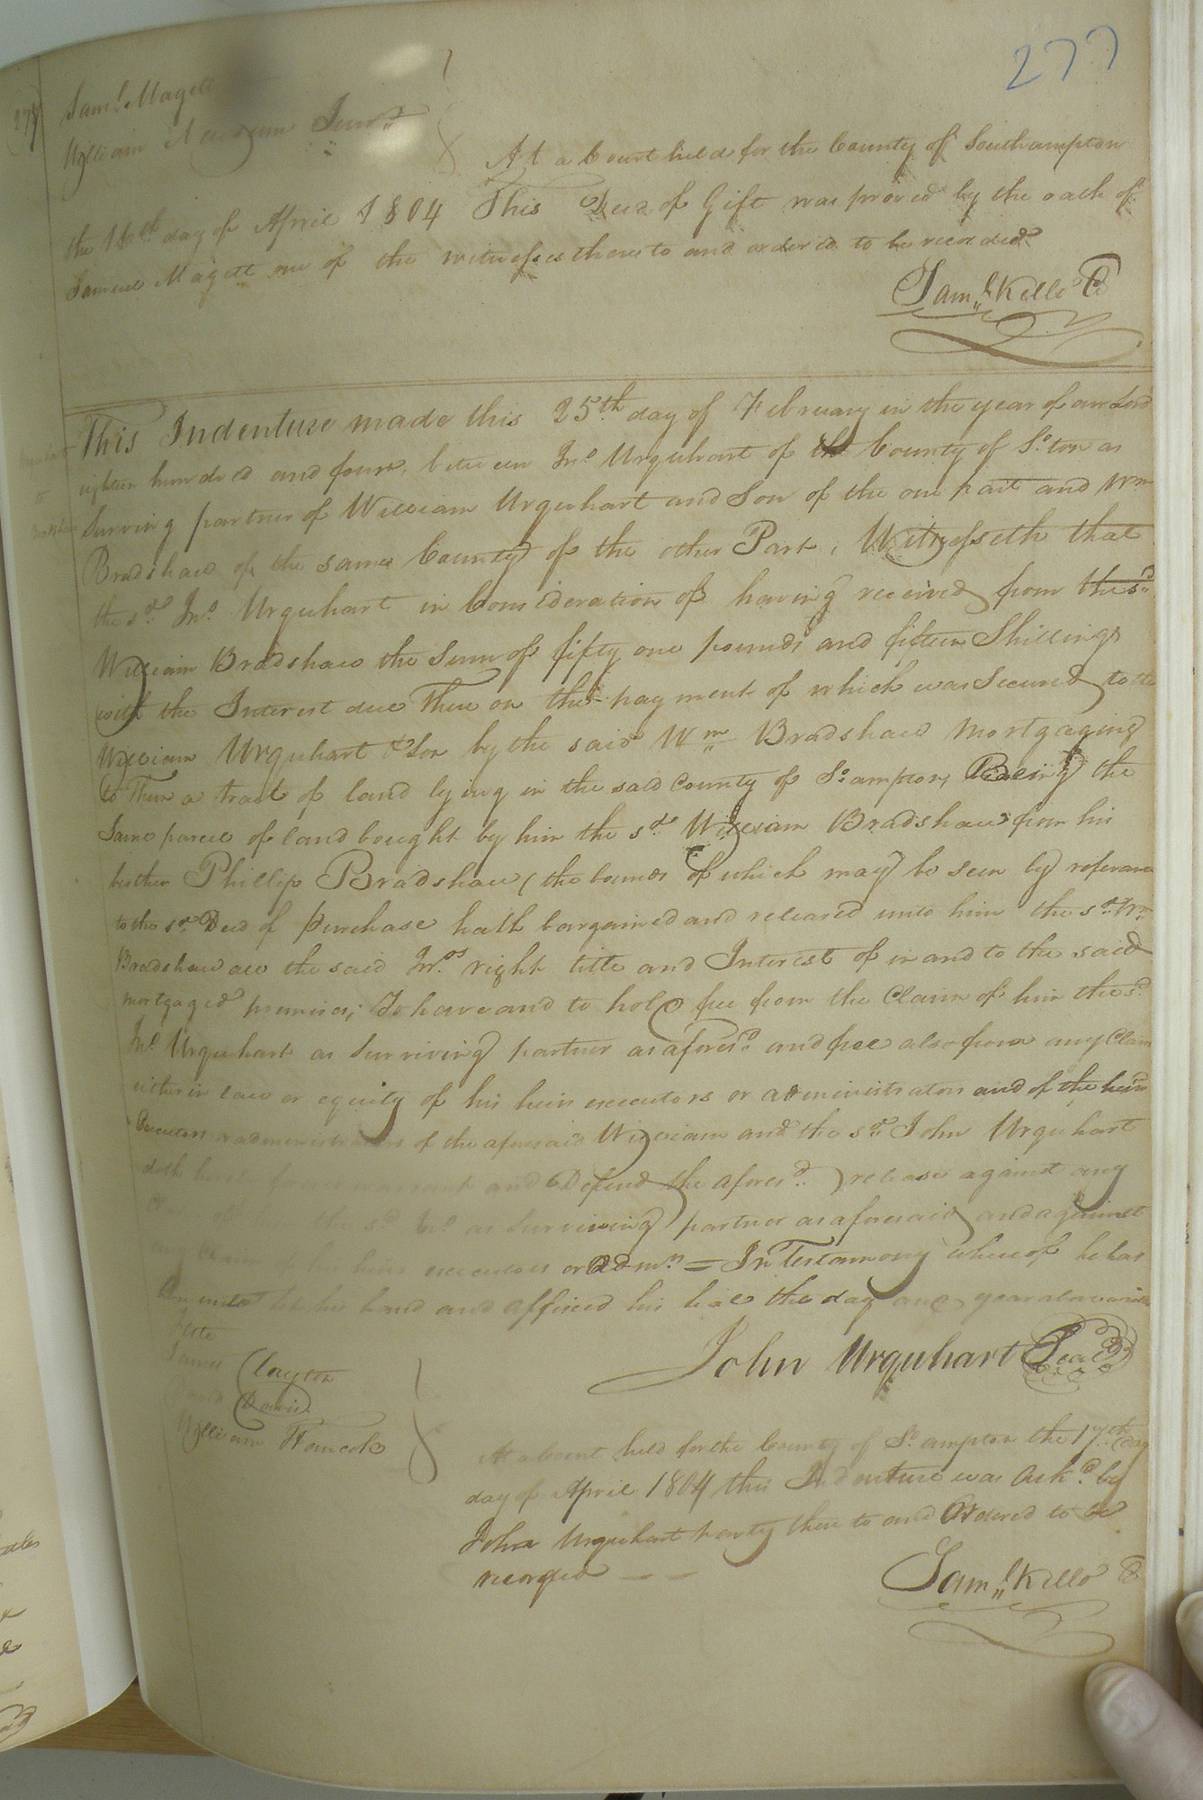 277
277
Saml. Magett
William Junr.
At a Court held for the County of Southampton
the 16th day of April 1804 This Deed of Gift was proved by the oath of
Samuel Magett one of the witnesses thereto and ordered to be recorded
Saml. Kello C
This Indenture made this 25th day of February in the year of our Lord
eighteen hundred and four, between Jno. Urquhart of the County of So.ton as
Surviving partner of William Urquhart and Son of the one part and Wm
Bradshaw of the same County of the other Part, Witnesseth that
the sd. Jno. Urquhart in Consideration of having received from the sd.
William Bradshaw the Sum of fifty one pounds and fifteen Shillings
with the Interest due Thereon the payment of which was Secured to the
William Urquhart & Son by the said Wm. Bradshaw Mortgaging
to Them a tract of land lying in the said County of So.ampton, Being the
Same parcel of land bought by him the sd. William Bradshaw from his
brother Phillip Bradshaw (the bounds of which may be seen by reference
to the sd. Deed of Purchase hath bargained and released unto him the sd. Wm.
Bradshaw all the said Jno.s right title and Interest of in and to the said
mortgaged premises; To have and to hold free from the Claim of him the sd.
Jno. Urquhart as Surviving partner as aforesd. and free also from any Claim
either in law or equity of his heirs executors or administrators and of the heirs
Executors or administrators of the aforesaid William and the sd. John Urquhart
doth warrant and Defend the aforesd. release against any
the sd. Jno. as Surviving partner as aforesaid and against
any claim his heirs executors or Admrs. = In Testamony whereof he has
hereunto set his hand and affixed his seal the day and year above written
Teste
James Clayton
David
William Hancock
John Urquhart Seal
At a Court held for the County of So.ampton the 17th day
day of April 1804 this Indenture was Ackd. by
John Urquhart party thereto and Ordered to be
recorded
Saml. Kello C